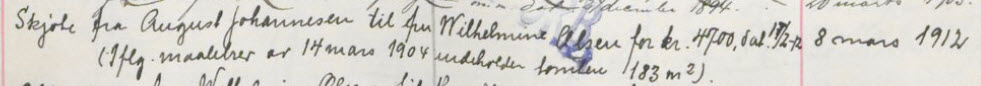 december 1894.
Skjøte fra August Johannesen til fru Wilhelmine Olsen for kr. 4700, dat. 17/2-12 8 mars 1912
(Iflg. maalebrev av 14 mars 1904 indeholder tomten 183 m²).